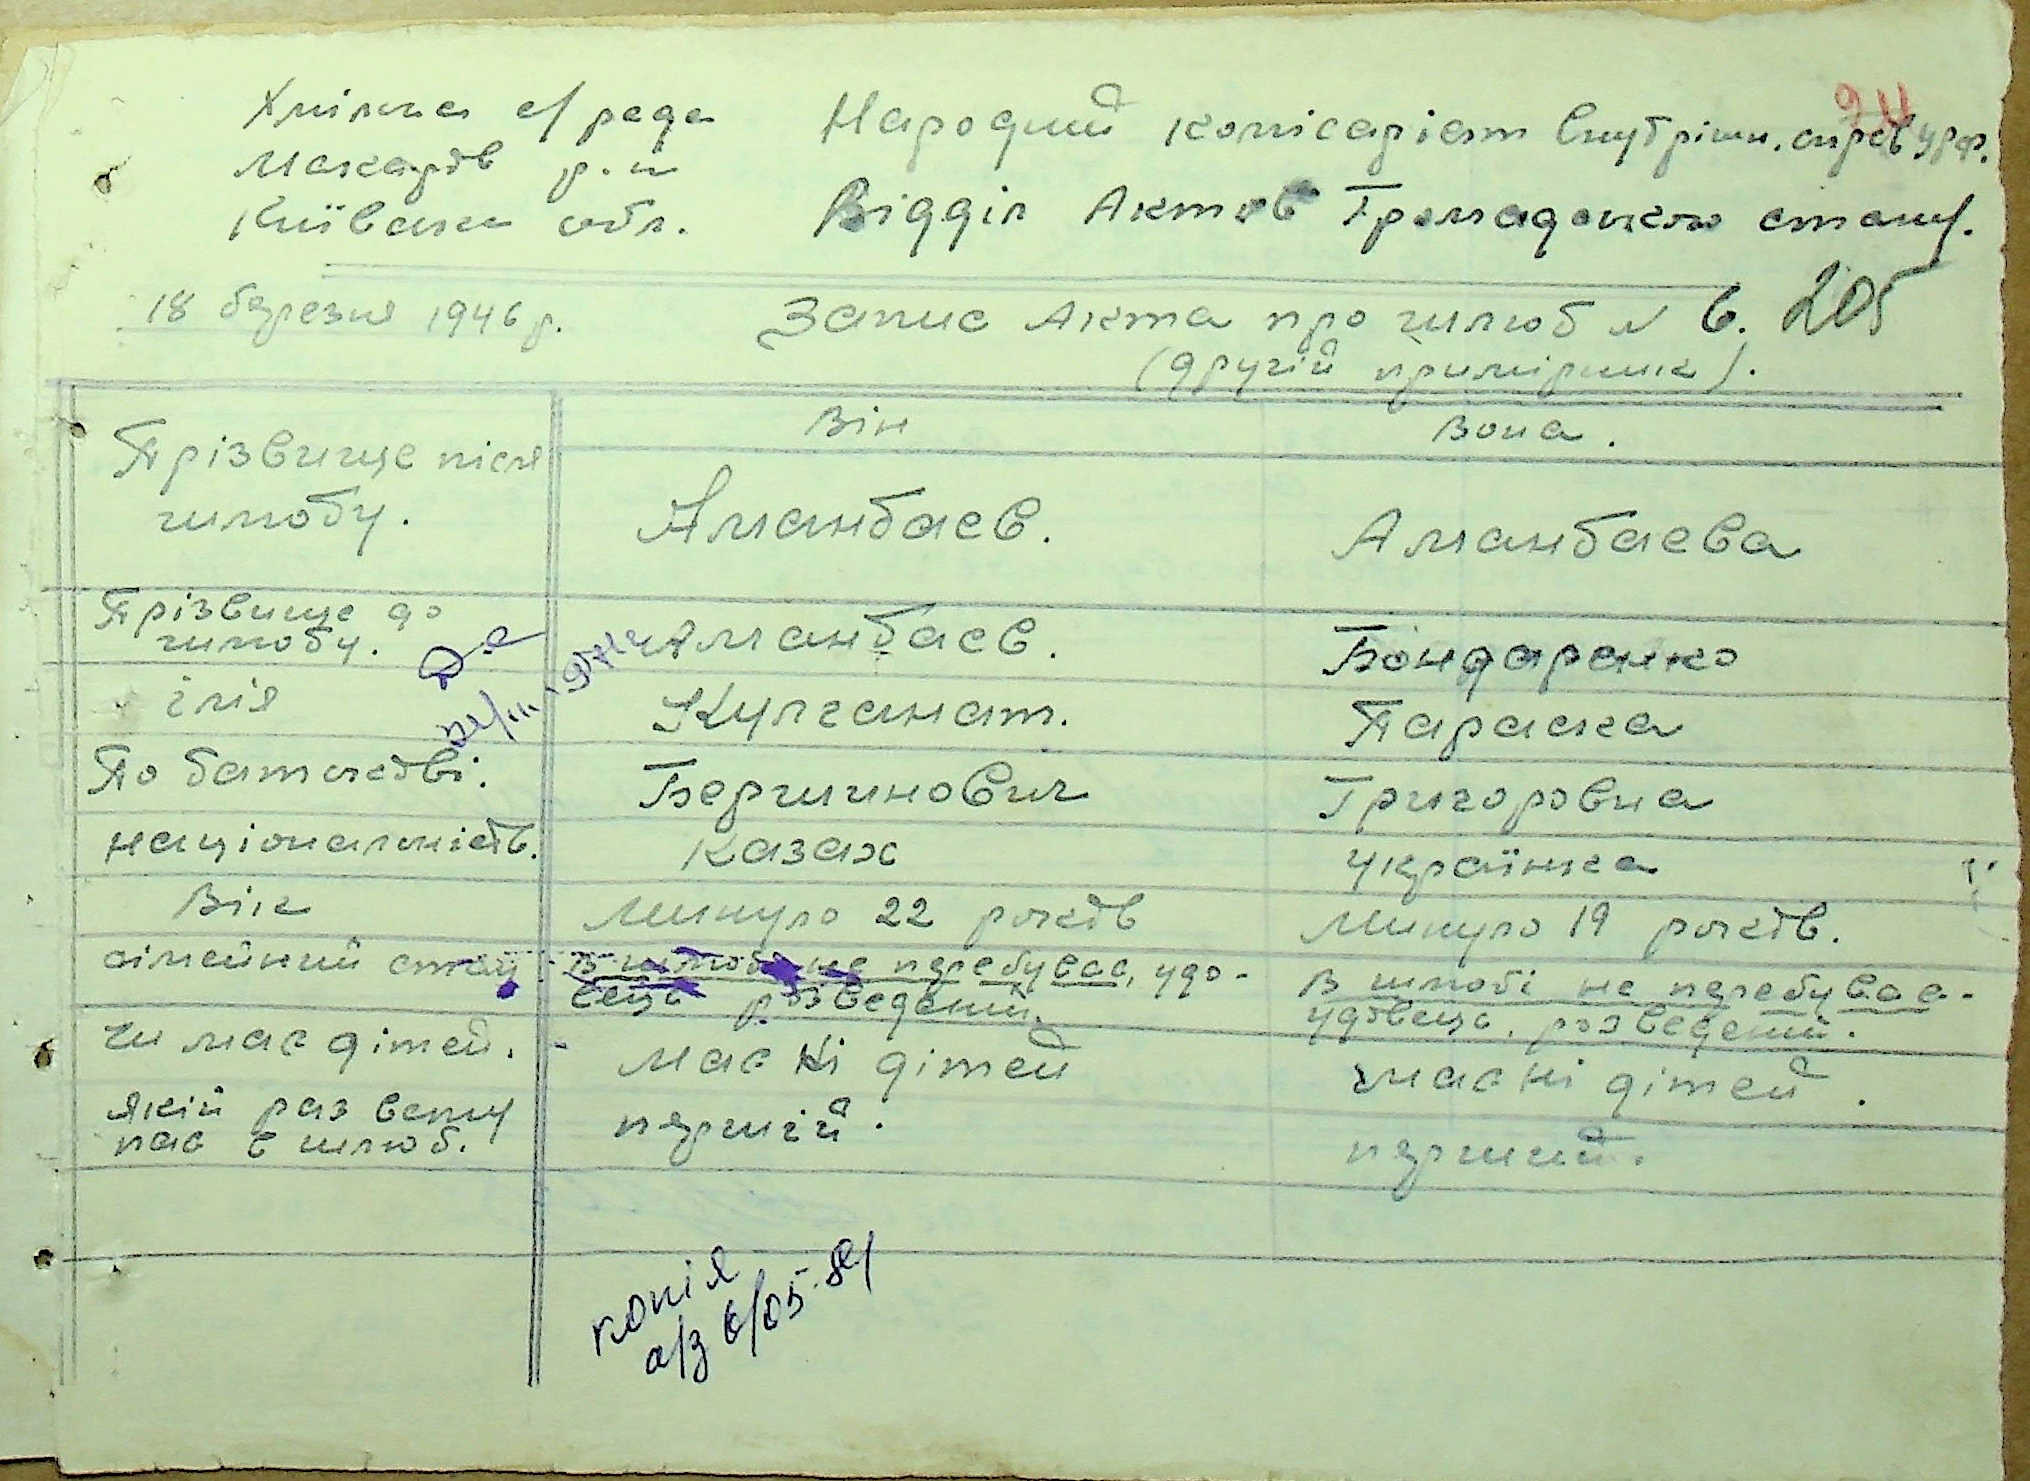 Хмільна с/рада
Макарів р.н
Київська обл.
Народний комісаріат Внутрішн. справ УРСР.
Відділ Актов Громадського стану.
94
18 березня 1946 р.
Запис Акта про шлюб № 6. 205
(другій примірник).
Він
Вона.
Прізвище після
шлюбу.
Аманбаев.
Аманбаева
Прізвище до
шлюбу.
Аманбаев.
Бондаренко
імя
Кулганат.
Параска
По батькові.
Бершинович
Григоровна
національність.
казах
українка
Вік
Минуло 22 років
Минуло 19 років.
сімейний стан
В шлюбі не перебуває, удо-
вець розведений.
В шлюбі не перебуває-
удовець. розведений.
чи має дітей.
має ні дітей
має ні дітей.
якій раз всту
пає в шлюб.
первий.
перший.
копія
а/з 6/05-81